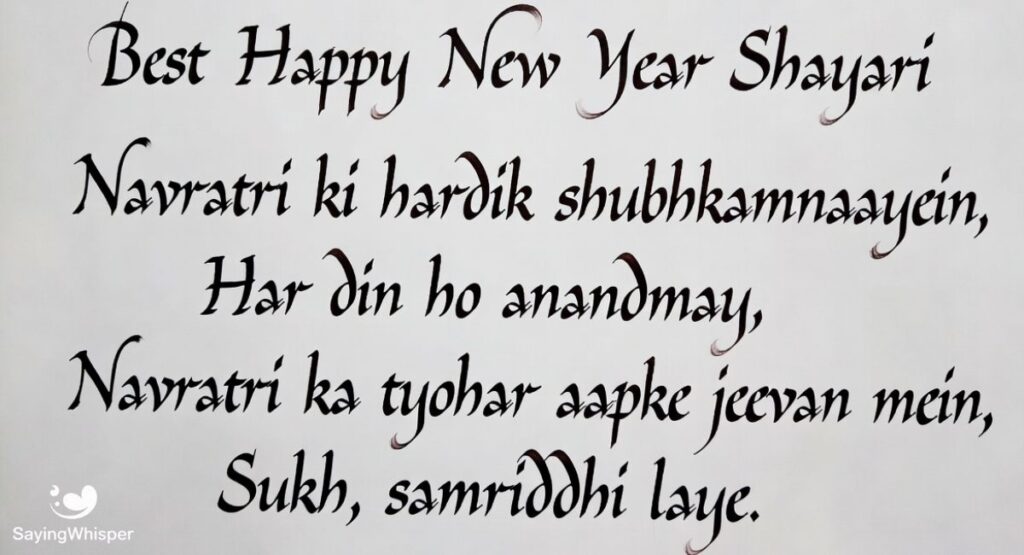 Best Happy New Year Shayari
Navratri ki hardik shubhkamnaayein,
Har din ho anandmay,
Navratri ka tyohar aapke jeevan mein,
Sukh, samriddhi laye.
SayingWhisper